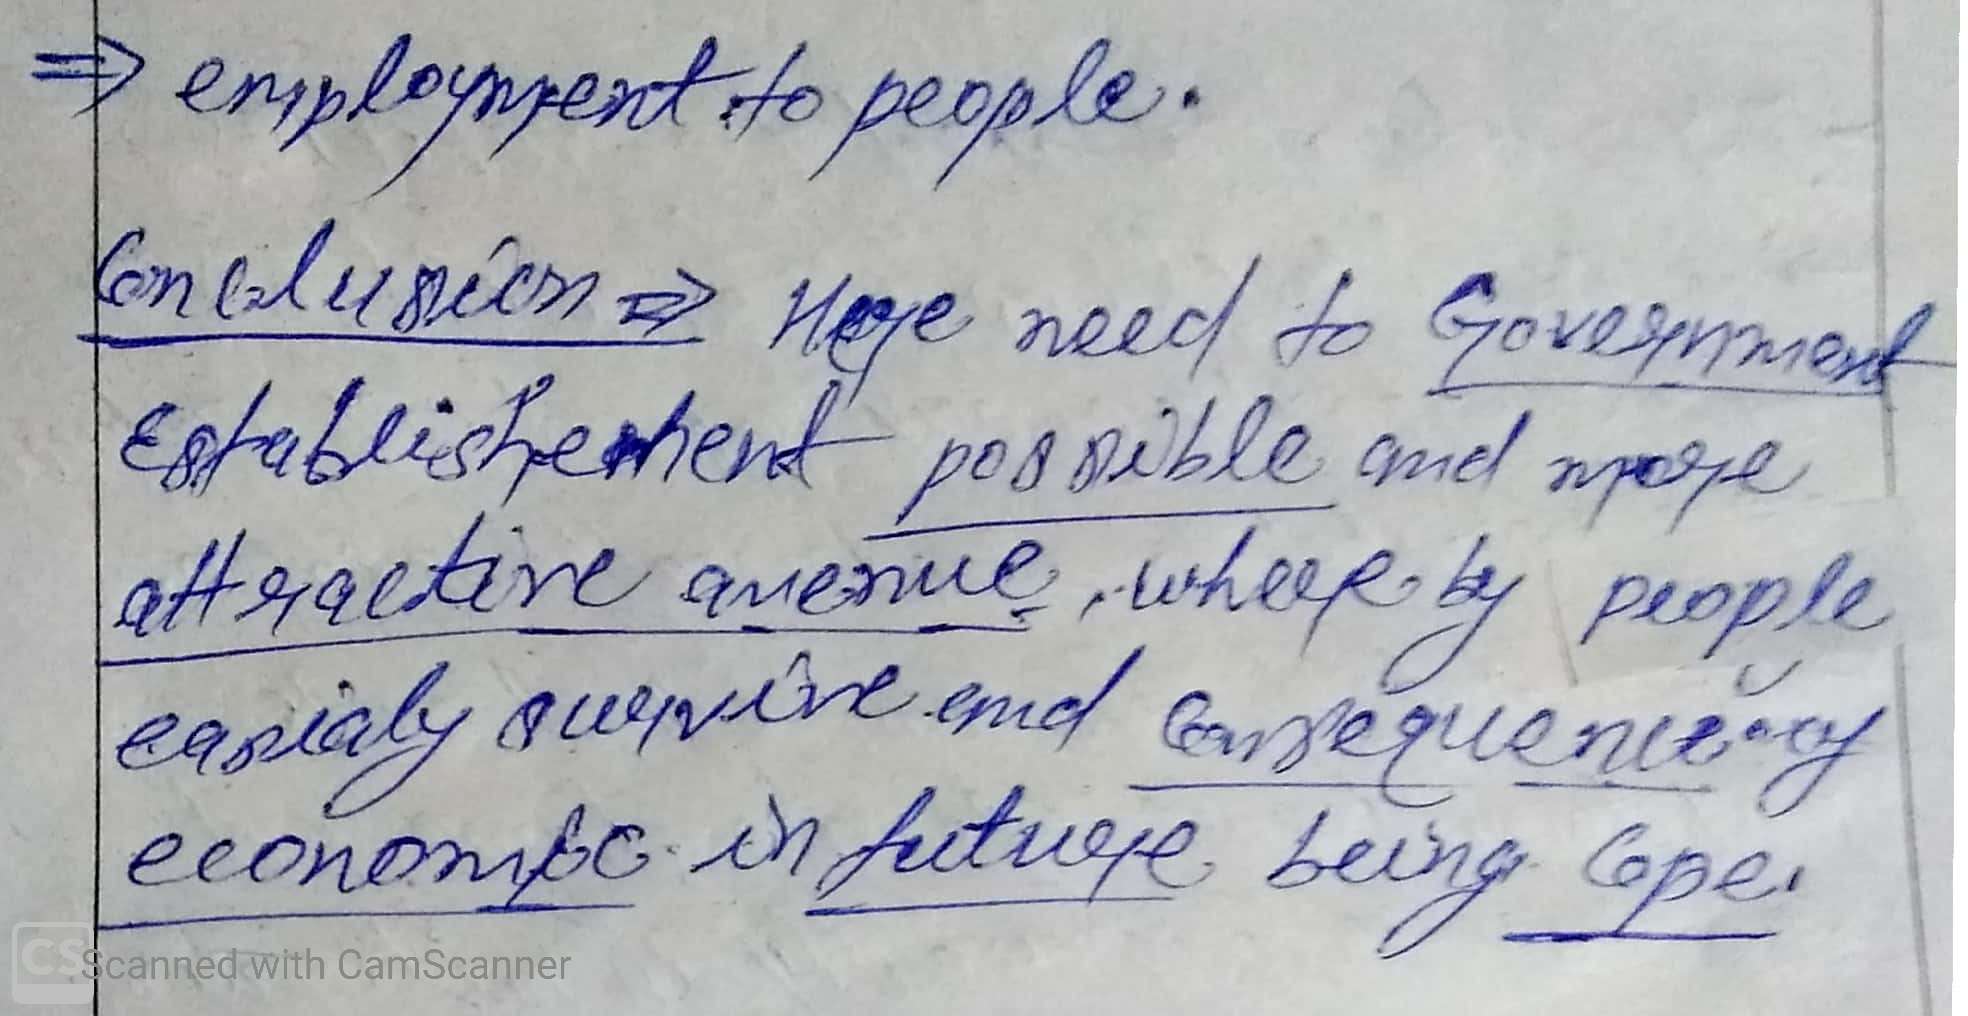 ⇒ employment to people.
Conclusion ⇒ Here need to Government
Establishement possible and more
attractive avenue, where by people
easialy survive and Consequence.cy
economic in future being Cope.
CS Scanned with CamScanner